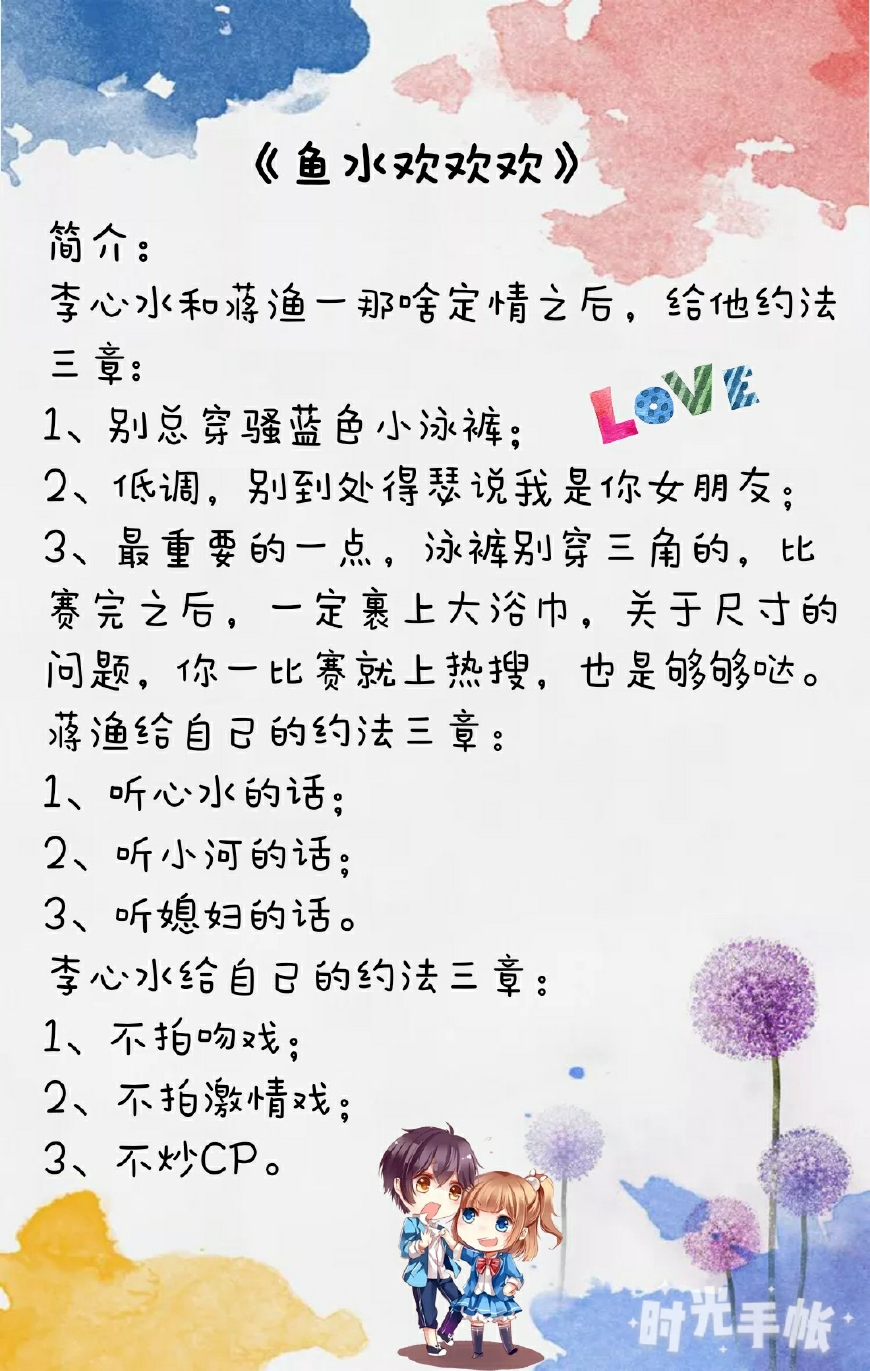 《鱼水欢欢欢》
简介：
李心水和蒋渔一那啥定情之后，给他约法
三章：
LOVE
1、别总穿骚蓝色小泳裤；
2、低调，别到处得瑟说我是你女朋友；
3、最重要的一点，泳裤别穿三角的，比
赛完之后，一定裹上大浴巾，关于尺寸的
问题，你一比赛就上热搜，也是够够哒。
蒋渔给自己的约法三章：
1、听心水的话；
2、听小河的话；
3、听媳妇的话。
李心水给自己的约法三章：
1、不拍吻戏；
2、不拍激情戏；
3、不炒CP。
时光手帐